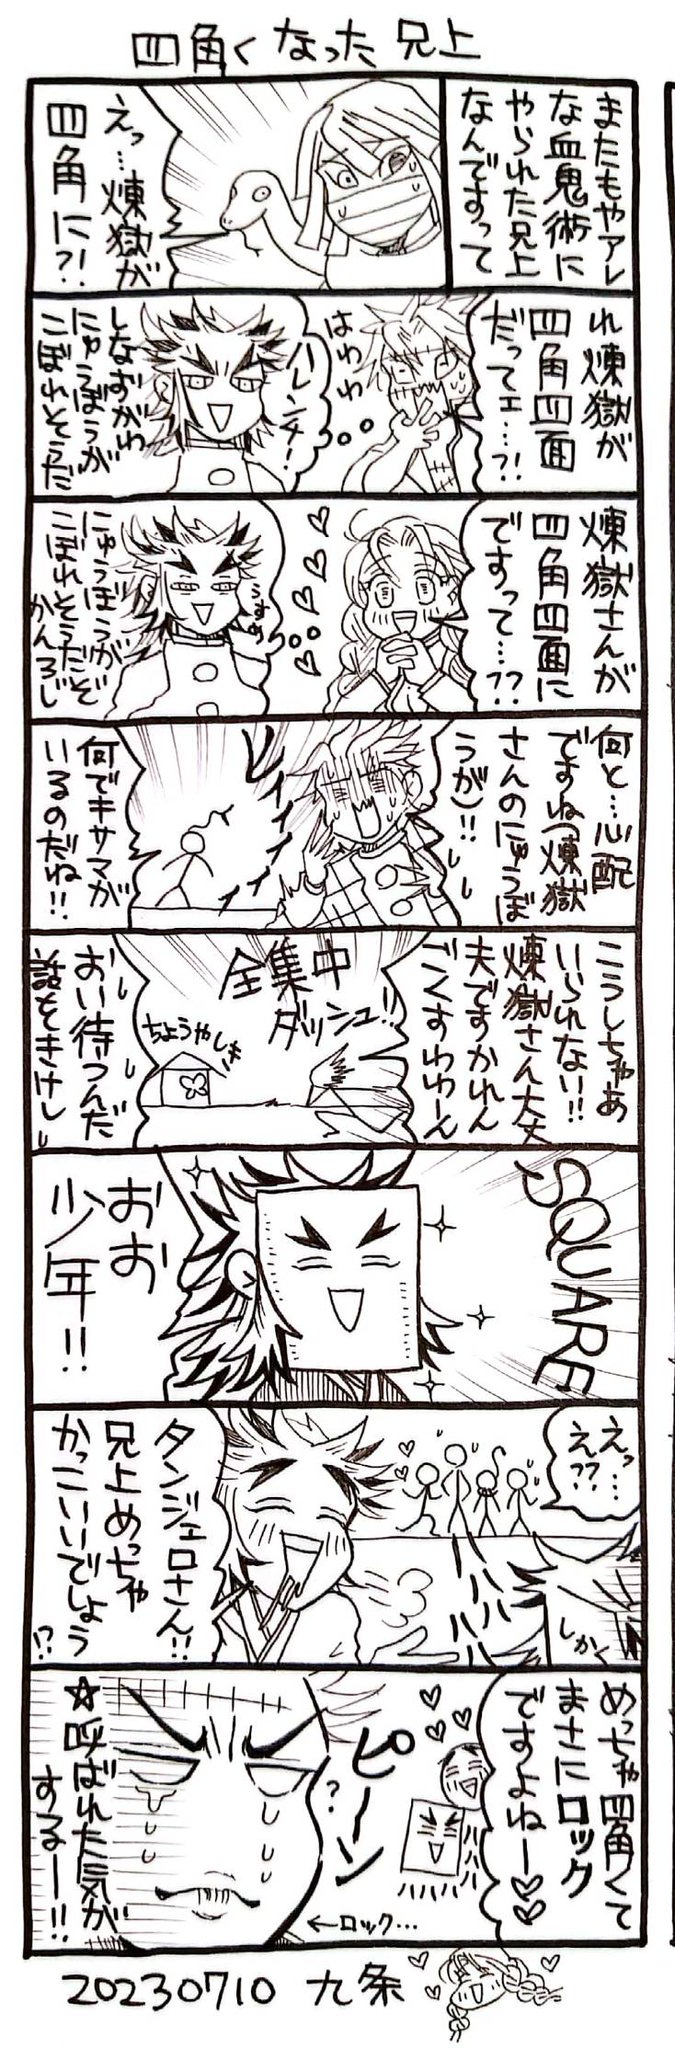 四角くなった兄上
またもやアレ
な血鬼術に
やられた兄上
なんですって
えっ…煉獄が
四角に?!
れ煉獄が
四角四面
だってェ…?!
はわわ
ハレンチ!
しなずがわ
にゅうぼうが
こぼれそうだ
煉獄さんが
四角四面に
ですって…??
うずめ
にゅうぼうがぞ
こぼれそうだぞ
かんろじ
何と…心配
ですね(煉獄
さんのにゅうぼ
うが)!!
何でキサマが
いるのだね!!
こうしちゃあ
いられない!!
煉獄さん大丈
夫ですかれん
ごくすわゎーん
全集中
ダッシュ!!
ちょうやしき
おい待つんだ
話をきけし
SQUARE
おお
少年!!
えっ…
え??
しかく
ハハハハ
タンジェロさん!!
兄上めっちゃ
かっこいいでしょう
!?
めっちゃ四角くて
まさにロック
ですよねー♡♡
ピーン
?
←ロック…
☆呼ばれた気が
するー!!
20230710 九条